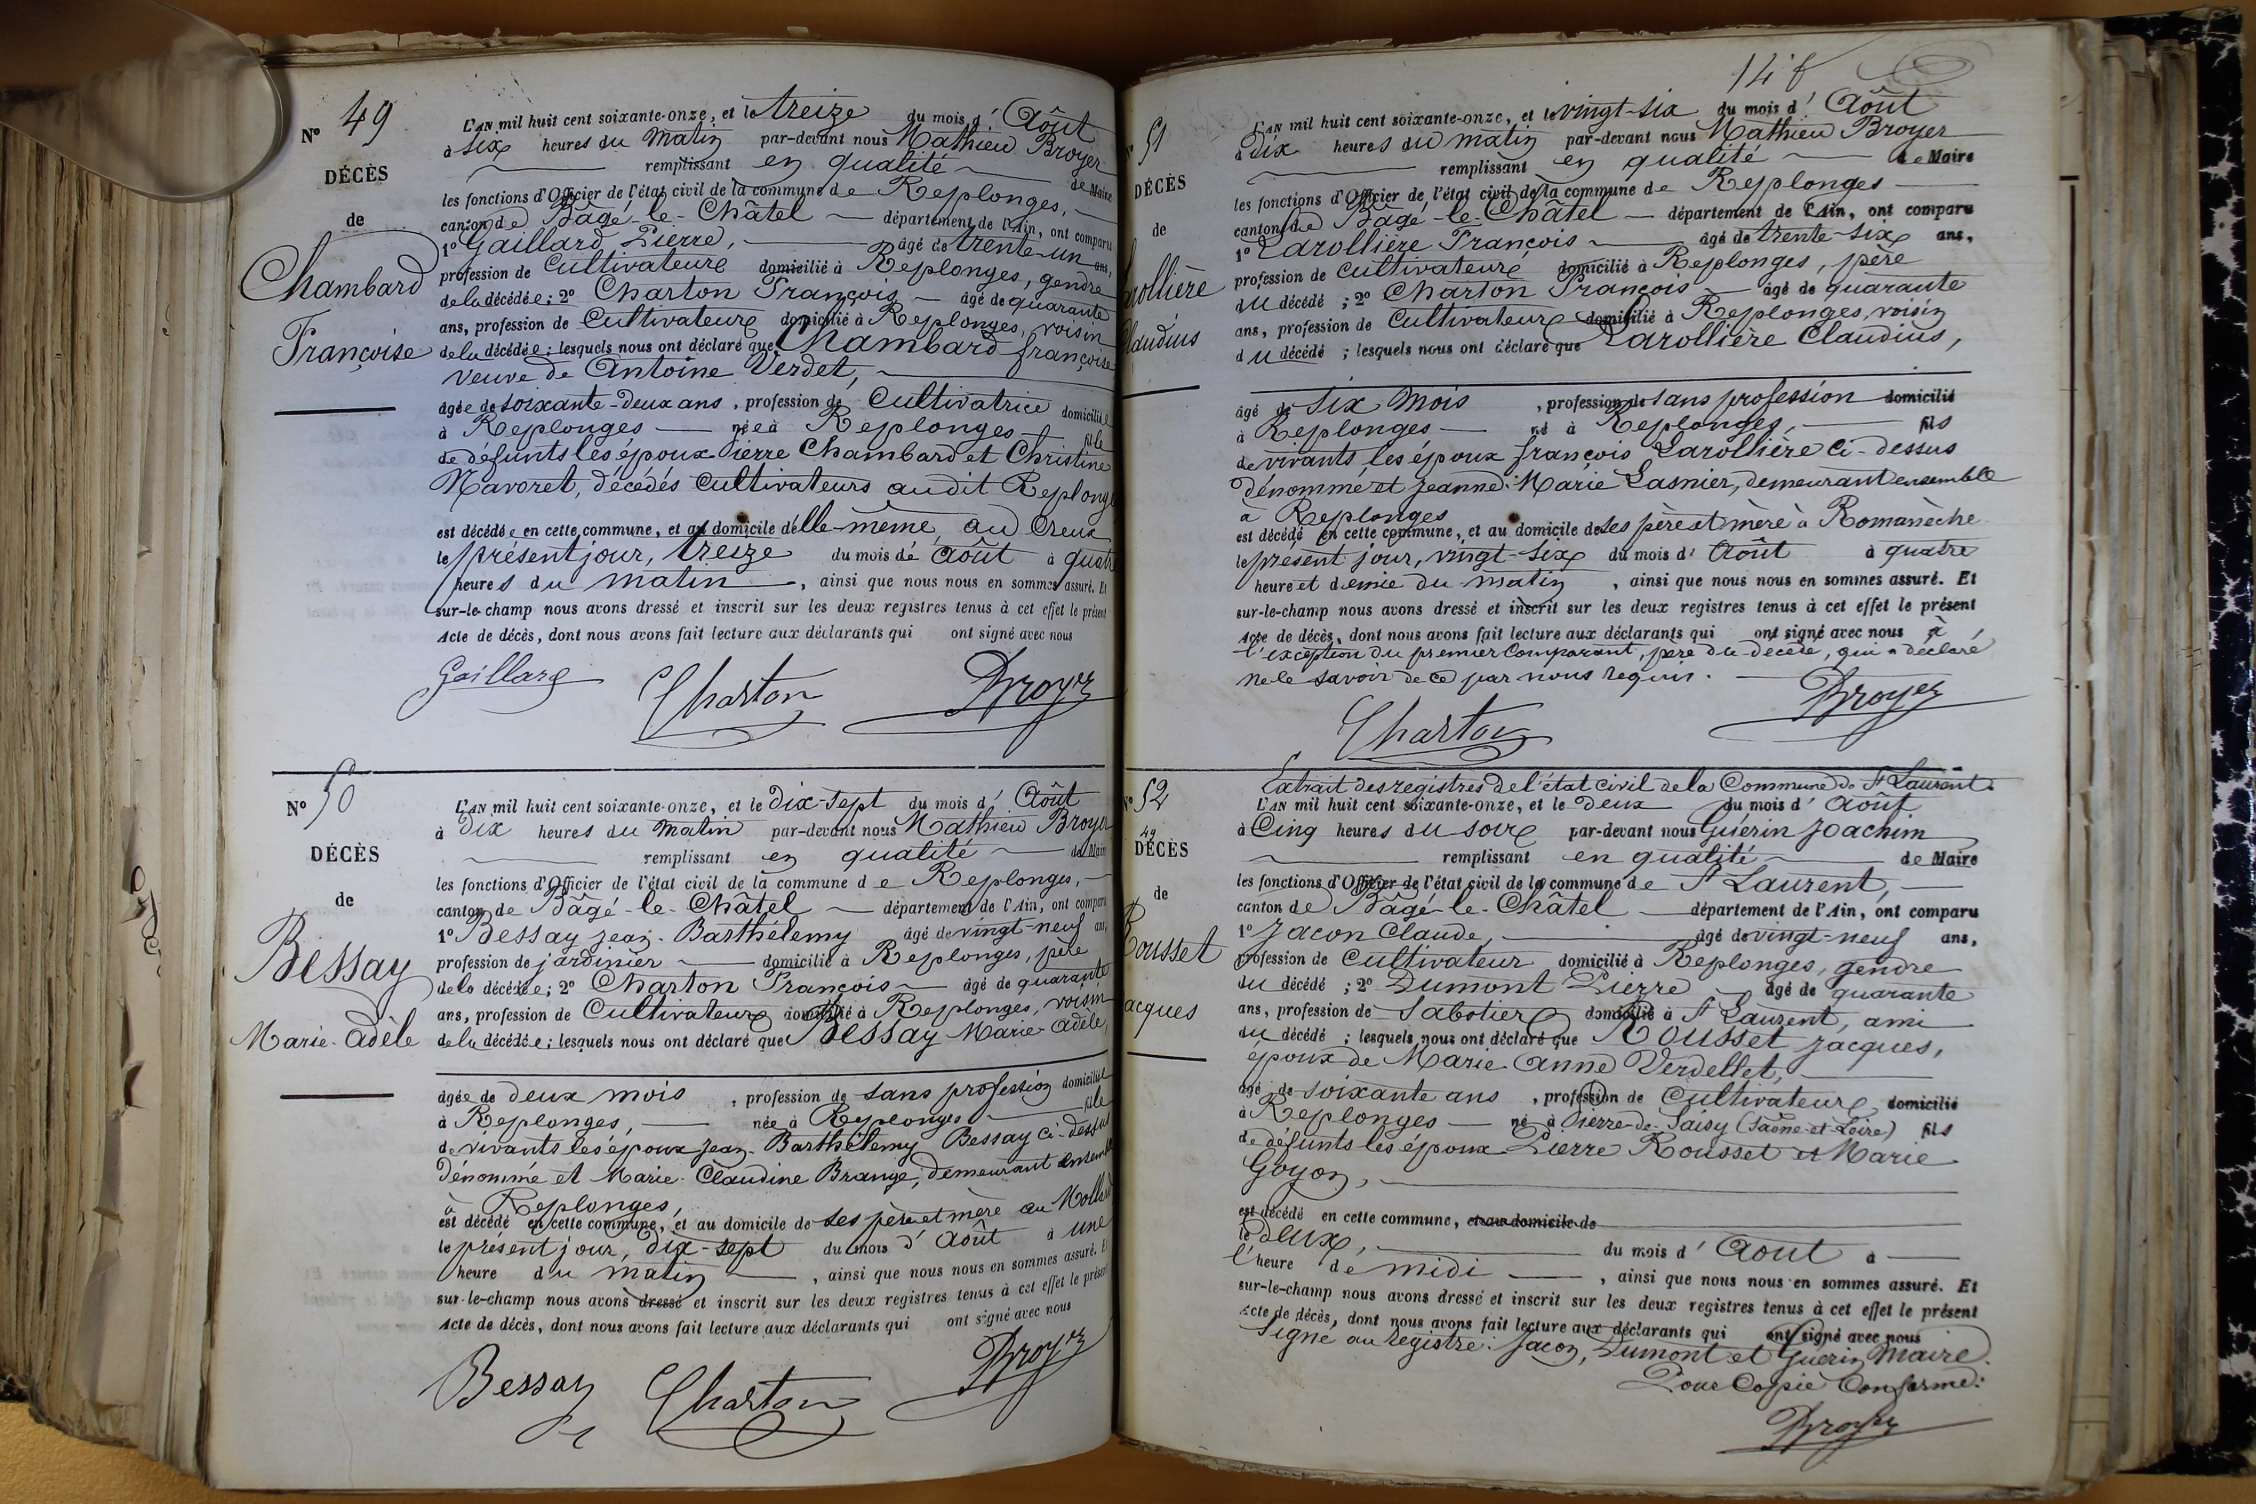 N° 49
DÉCÈS
de
Chambard
Françoise
L'AN mil huit cent soixante-onze, et le treize du mois d' Août
à six heures du matin par-devant nous Mathieu Broyer
remplissant en qualité de Maire
les fonctions d'Officier de l'état civil de la commune de Replonges,
canton de Bâgé-le-Châtel département de l'Ain, ont comparu
1° Gaillard Pierre, âgé de trente-un ans,
profession de Cultivateur domicilié à Replonges, gendre
de la décédée; 2° Charton François âgé de quarante
ans, profession de Cultivateur domicilié à Replonges, voisin
de la décédée; lesquels nous ont déclaré que Chambard françoise
veuve de Antoine Verdet,
âgée de soixante-deux ans, profession de Cultivatrice domiciliée
à Replonges née à Replonges fille
de défunts les époux Pierre Chambard et Christine
Navoret, décédés Cultivateurs audit Replonges
est décédée en cette commune, et au domicile d'elle-même, au Creux
le présent jour, treize du mois de Août à quatre
heures du matin, ainsi que nous nous en sommes assuré. Et
sur-le-champ nous avons dressé et inscrit sur les deux registres tenus à cet effet le présent
Acte de décès, dont nous avons fait lecture aux déclarants qui ont signé avec nous
Gaillard Charton Broyer
N° 50
DÉCÈS
de
Bessay
Marie-Adèle
L'AN mil huit cent soixante-onze, et le Dix-sept du mois d' Août
à Dix heures du matin par-devant nous Mathieu Broyer
remplissant en qualité de Maire
les fonctions d'Officier de l'état civil de la commune de Replonges,
canton de Bâgé-le-Châtel département de l'Ain, ont comparu
1° Bessay jean-Barthélemy âgé de vingt-neuf ans,
profession de jardinier domicilié à Replonges, père
de la décédée; 2° Charton François âgé de quarante
ans, profession de Cultivateur domicilié à Replonges, voisin
de la décédée; lesquels nous ont déclaré que Bessay Marie-Adèle,
âgée de deux mois, profession de sans profession domiciliée
à Replonges, née à Replonges fille
de vivants les époux jean-Barthélemy Bessay ci-dessus
dénommé et Marie-Claudine Brange, demeurant ensemble
à Replonges,
est décédé en cette commune, et au domicile de ses père et mère au Mollard
le présent jour, dix-sept du mois d' Août à une
heure du matin, ainsi que nous nous en sommes assuré. Et
sur-le-champ nous avons dressé et inscrit sur les deux registres tenus à cet effet le présent
Acte de décès, dont nous avons fait lecture aux déclarants qui ont signé avec nous
Bessay Charton Broyer
51
DÉCÈS
de
arollière
laudius
L'AN mil huit cent soixante-onze, et le vingt-six du mois d' Août
à Dix heures du matin par-devant nous Mathieu Broyer
remplissant en qualité de Maire
les fonctions d'Officier de l'état civil de la commune de Replonges
canton de Bâgé-le-Châtel département de l'Ain, ont comparu
1° Larollière François âgé de trente-six ans,
profession de cultivateur domicilié à Replonges, père
du décédé; 2° Charton François âgé de quarante
ans, profession de Cultivateur domicilié à Replonges, voisin
du décédé; lesquels nous ont déclaré que Larollière Claudius,
âgé de six mois, profession de sans profession domicilié
à Replonges né à Replonges, fils
de vivants les époux françois Larollière ci-dessus
dénommé et jeanne-Marie Lasnier, demeurant ensemble
à Replonges
est décédé en cette commune, et au domicile de ses père et mère à Romanèche
le présent jour, vingt-six du mois d' Août à quatre
heure et demie du matin, ainsi que nous nous en sommes assuré. Et
sur-le-champ nous avons dressé et inscrit sur les deux registres tenus à cet effet le présent
Acte de décès, dont nous avons fait lecture aux déclarants qui ont signé avec nous à
l'exception du premier Comparant, père du décédé, qui a déclaré
ne le savoir de ce par nous requis.
Charton Broyer
N° 52
49
DÉCÈS
de
Rousset
acques
Extrait des registres de l'état civil de la Commune de St Laurent.
L'AN mil huit cent soixante-onze, et le Deux du mois d' Août
à Cinq heures du soir par-devant nous Guérin Joachim
remplissant en qualité de Maire
les fonctions d'Officier de l'état civil de la commune de St Laurent,
canton de Bâgé-le-Châtel département de l'Ain, ont comparu
1° Jacon Claude, âgé de vingt-neuf ans,
profession de Cultivateur domicilié à Replonges, gendre
du décédé; 2° Dumont Pierre âgé de quarante
ans, profession de Sabotier domicilié à St Laurent, ami
du décédé; lesquels nous ont déclaré que Rousset jacques,
époux de Marie Anne Verdellet,
âgé de soixante ans, profession de Cultivateur domicilié
à Replonges né à Pierre-de-Saisy (Saône-et-Loire) fils
de défunts les époux Pierre Rousset et Marie
Goyon,
est décédé en cette commune, et au domicile de
le Deux, du mois d' Août à
l'heure de midi, ainsi que nous nous en sommes assuré. Et
sur-le-champ nous avons dressé et inscrit sur les deux registres tenus à cet effet le présent
Acte de décès, dont nous avons fait lecture aux déclarants qui ont signé avec nous
Signé au registre: Jacon, Dumont et Guérin Maire.
Pour Copie Conforme:
Broyer